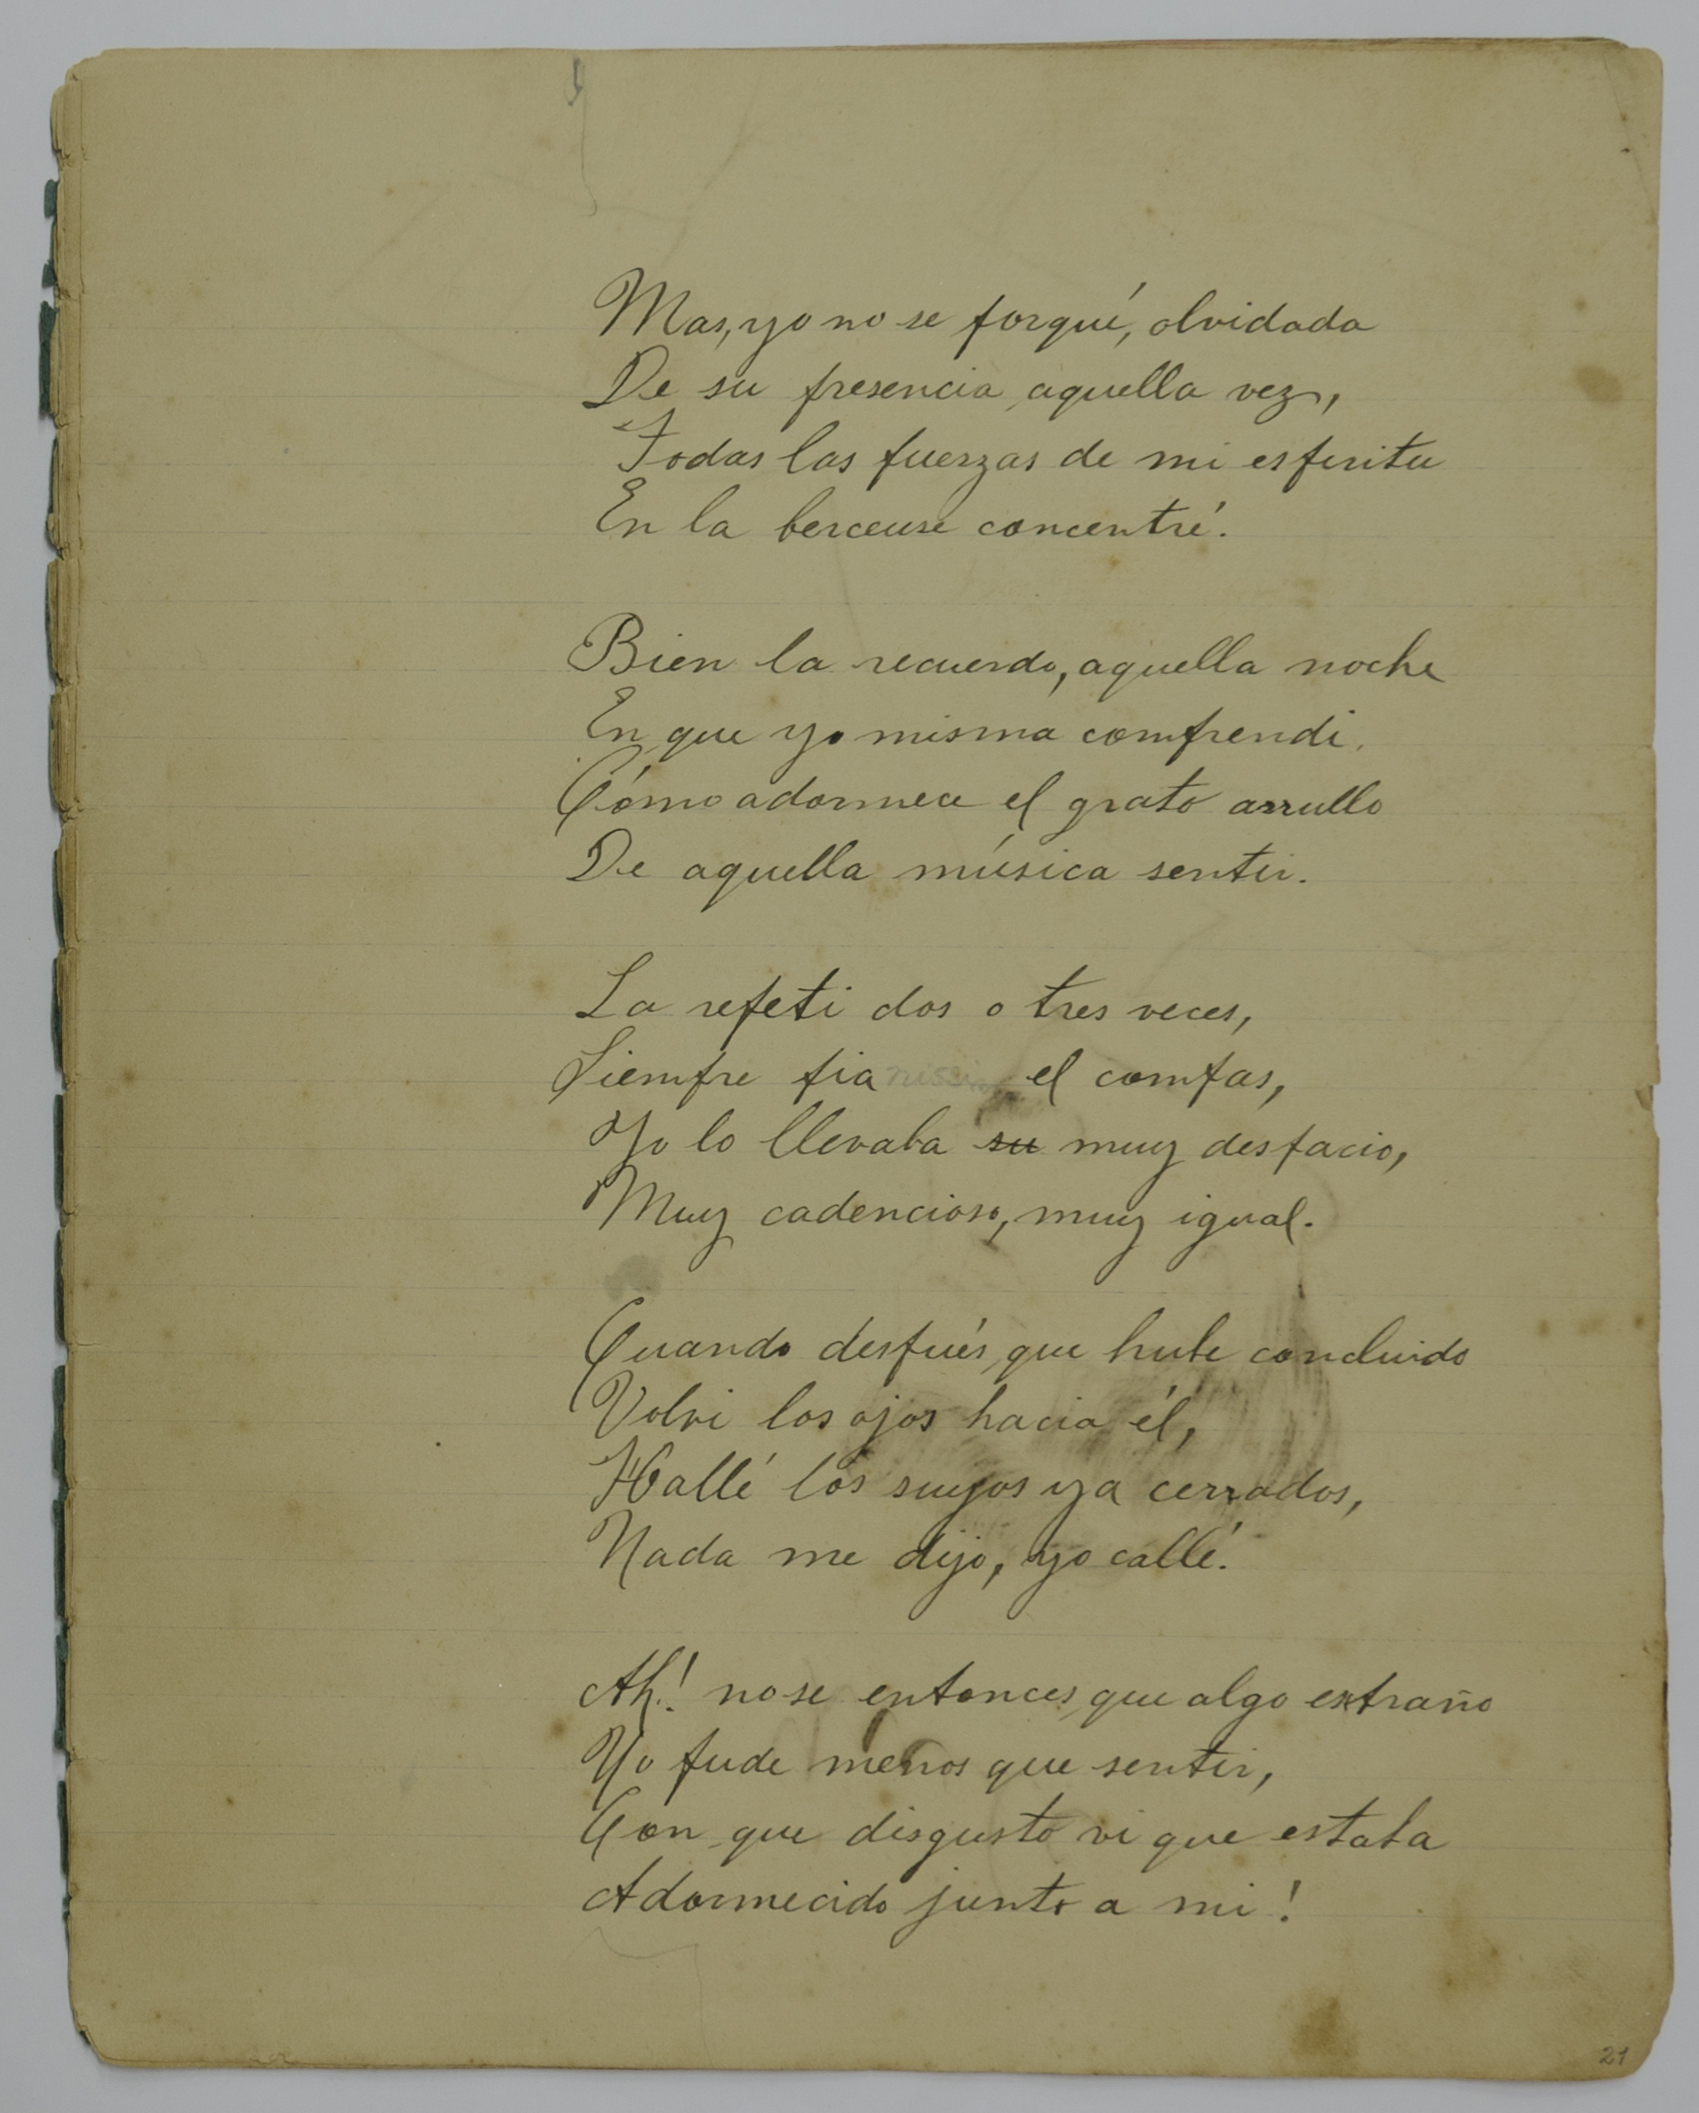 Mas, yo no se porqué, olvidada
De su presencia aquella vez,
Todas las fuerzas de mi espiritu
En la berceuse concentré.
Bien la recuerdo, aquella noche
En que yo misma comprendi.
Cómo adormece el grato arrullo
De aquella música sentir.
La repeti dos o tres veces,
Siempre pianissimo el compas,
Yo lo llevaba su muy despacio,
Muy cadencioso, muy igual.
Cuando despúes que hube concluido
Volvi los ojos hacia él,
Hallé los suyos ya cerrados,
Nada me dijo, yo callé.
Ah! no se entonces que algo extraño
Yo pude menos que sentir,
Con que disgusto vi que estaba
Adormecido junto a mi!
21